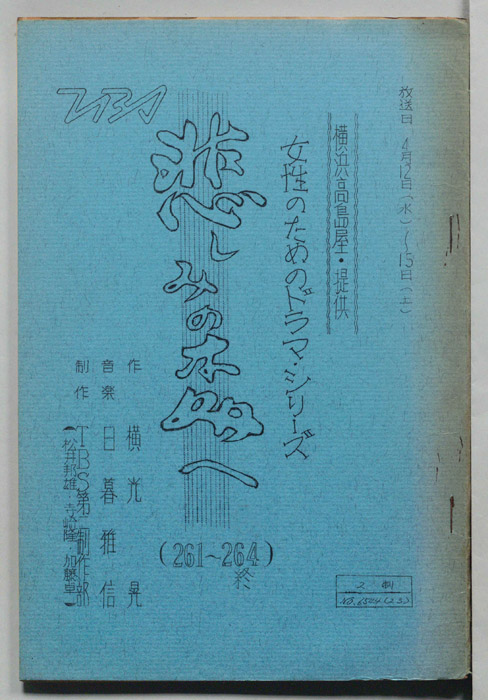 放送日 4月12日(水)~15日(土)
横浜高島屋・提供
女性のためのドラマ・シリーズ
TBS
悲しみの木曜へ
(261~264)
終
作 横光晃
音楽 日暮雅信
制作 TBS第二制作部
【松井邦雄・寺崎隆・加藤卓】
2制